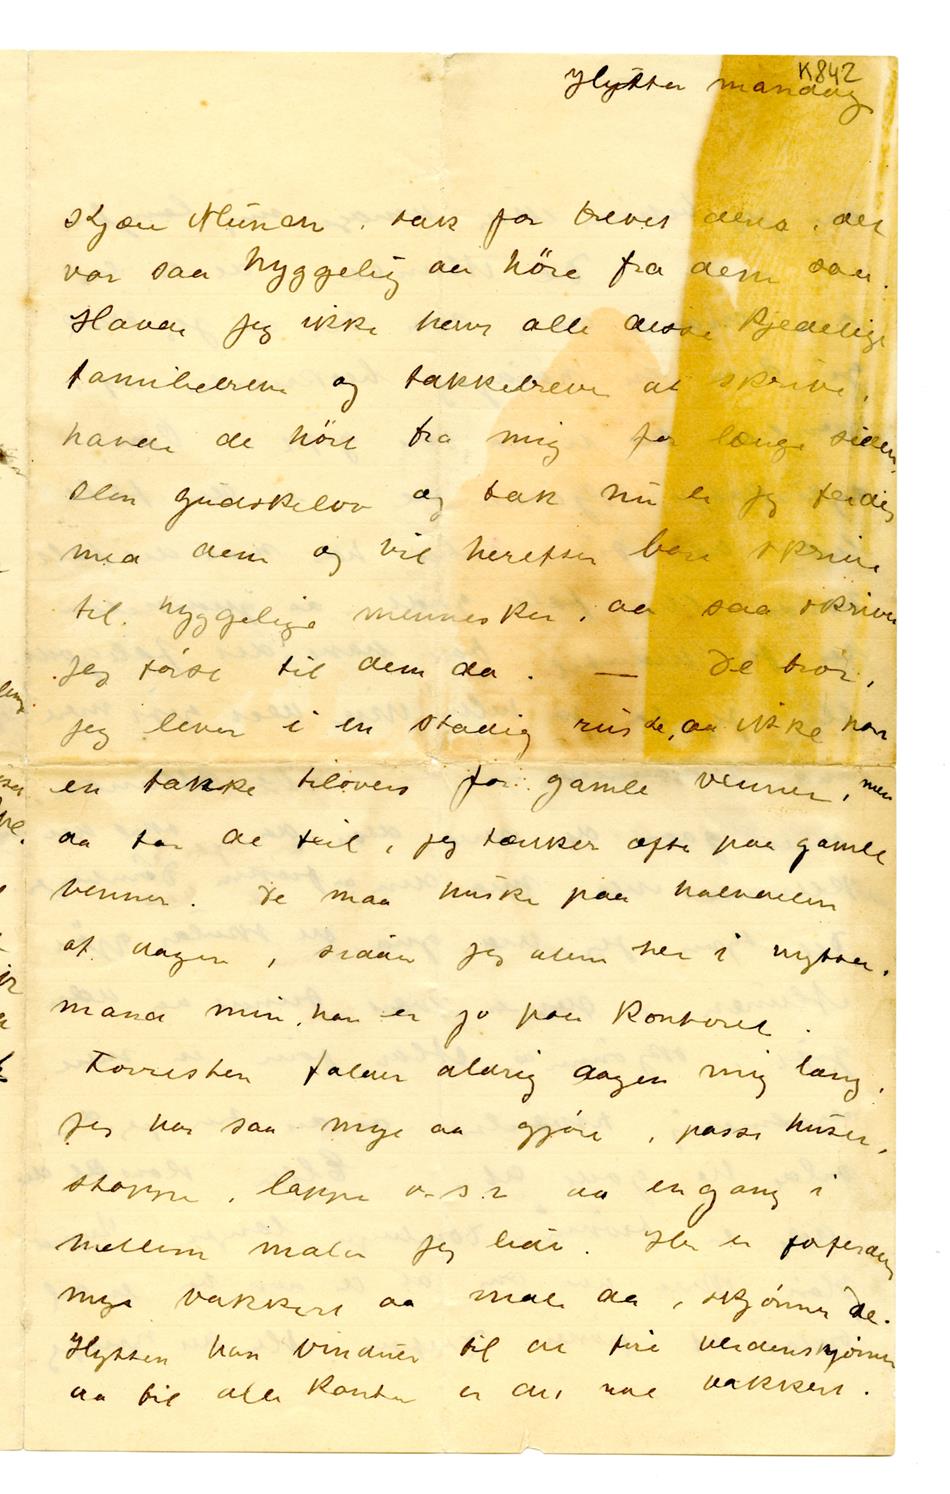 K842
Hytten mandag
Kjære Munch, tak for brevet deres, det
var saa hyggelig aa höre fra dem saa.
Havde jeg ikke havt alle disse kjedelige
familiebreve og takkebreve at skrive,
havde de hört fra mig for længe siden,
Men gudskelov og tak nu er jeg ferdig
med dem og vil herefter bare skrive
til hyggelige mennesker, aa saa skriver
jeg först til dem da. — De tror,
jeg lever i en stadig ruus de, aa ikke har
en takke tilovers for gamle venner, men
aa tar de feil, jeg tænker ofte paa gamle
venner. De maa huske paa halvdelen
af dagen, sidder jeg alene her i hytten,
mand min, han er jo paa kontoret.
Forresten falder aldrig dagen mig lang,
jeg har saa mye aa gjöre, passe huset,
stoppe, lappe o-s-v aa engang i
mellem maler jeg lidt. Her er forferdelig
mye vakkert aa male da, skjönner De.
Hytten har vinduer til de fire verdenshjörner
aa til alle kanter er det vakkert.